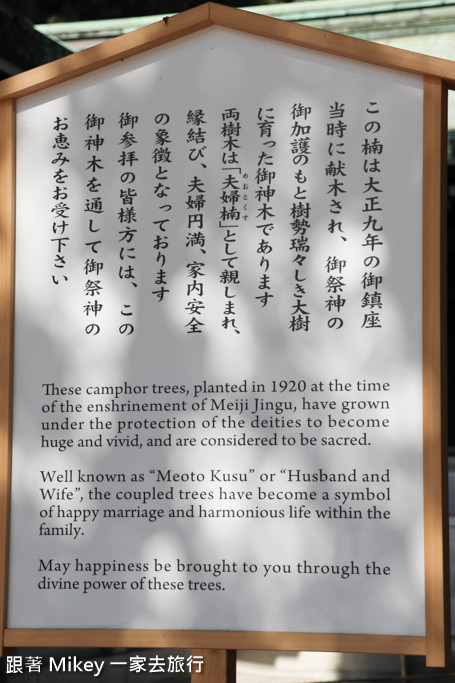 この楠は大正九年の御鎮座
当時に献木され、御祭神の
御加護のもと樹勢瑞々しき大樹
に育った御神木であります
両樹木は「夫婦楠」として親しまれ、
めおとくす
縁結び、夫婦円満、家内安全
の象徴となっております
御参拝の皆様方には、この
御神木を通して御祭神の
お恵みをお受け下さい
These camphor trees, planted in 1920 at the time
of the enshrinement of Meiji Jingu, have grown
under the protection of the deities to become
huge and vivid, and are considered to be sacred.
Well known as “Meoto Kusu” or “Husband and
Wife”, the coupled trees have become a symbol
of happy marriage and harmonious life within the
family.
May happiness be brought to you through the
divine power of these trees.
跟著 Mikey 一家去旅行